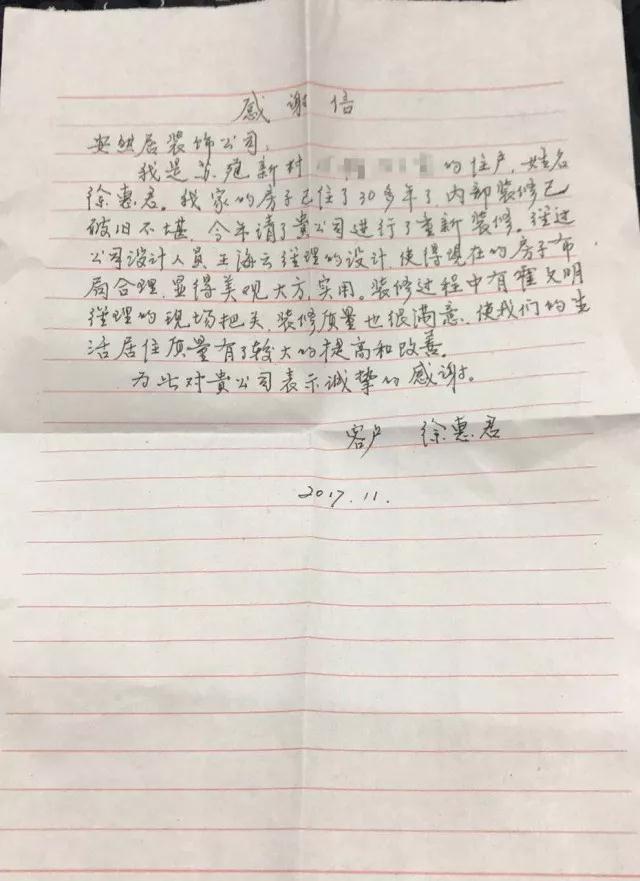 感谢信
安然居装饰公司,
我是苏苑新村 的住户,姓名
徐惠君。我家的房子已住了30多年了,内部装修已
破旧不堪,今年请了贵公司进行了重新装修。经过
公司设计人员王海云经理的设计,使得现在的房子布
局合理,显得美观大方,实用。装修过程中有崔文明
经理的现场把关,装修质量也很满意,使我们的生
活居住质量有了较大的提高和改善。
为此对贵公司表示诚挚的感谢。
客户 徐惠君
2017.11.